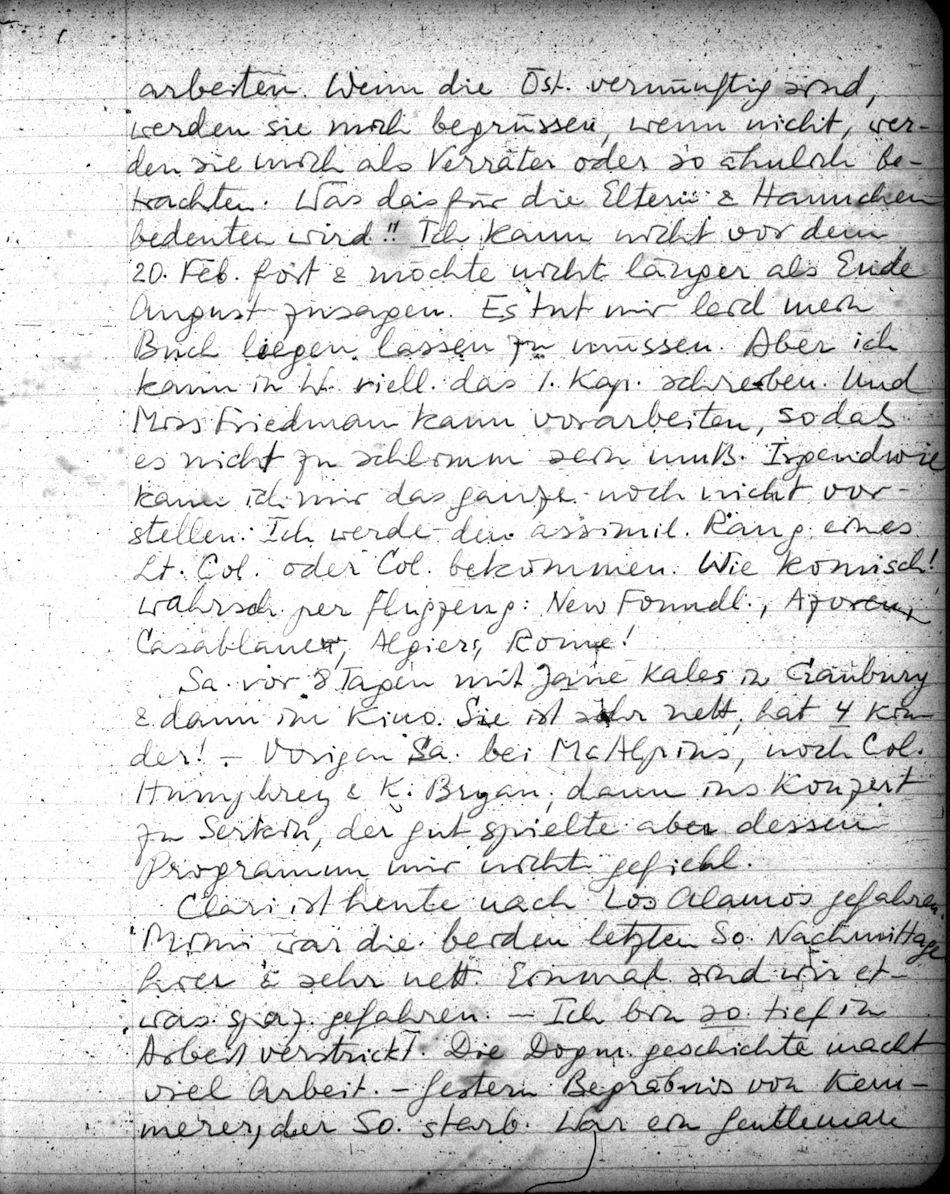 arbeiten. Wenn die Öst. vernünftig sind,
werden sie mich begrüssen, wenn nicht, wer-
den sie mich als Verräter oder so ähnlich be-
trachten. Was das für die Eltern & Hannchen
bedeuten wird!! Ich kann nicht vor dem
20. Feb. fort & möchte nicht länger als Ende
August zusagen. Es tut mir leid mein
Buch liegen lassen zu müssen. Aber ich
kann in W. viell. das 1. Kap. schreiben. Und
Miss Friedman kann vorarbeiten, sodaß
es nicht zu schlimm sein muß. Irgendwie
kann ich mir das ganze noch nicht vor-
stellen. Ich werde den assimil. Rang eines
Lt. Col. oder Col. bekommen. Wie komisch!
Wahrsch. per Flugzeug: New Foundl., Azoren,
Casablanca, Algiers, Rome!
Sa. vor 8 Tagen mit Jane Kales in Cranbury
& dann im Kino. Sie ist sehr nett, hat 4 Kin-
der! – Vorigen Sa. bei McAlpins, noch Col.
Humphrey & K. Bryan, dann ins Konzert
zu Serkin, der gut spielte aber dessen
Programm mir nicht gefiehl.
Clari ist heute nach Los Alamos gefahren
Mimi war die beiden letzten So. Nachmittage
hier & sehr nett. Einmal sind wir et-
was spaz. gefahren. – Ich bin so tief in
Arbeit verstrickt. Die Dogm. geschichte macht
viel Arbeit. – Gestern Begräbnis von Kem-
merer, der So. starb. War ein Gentleman